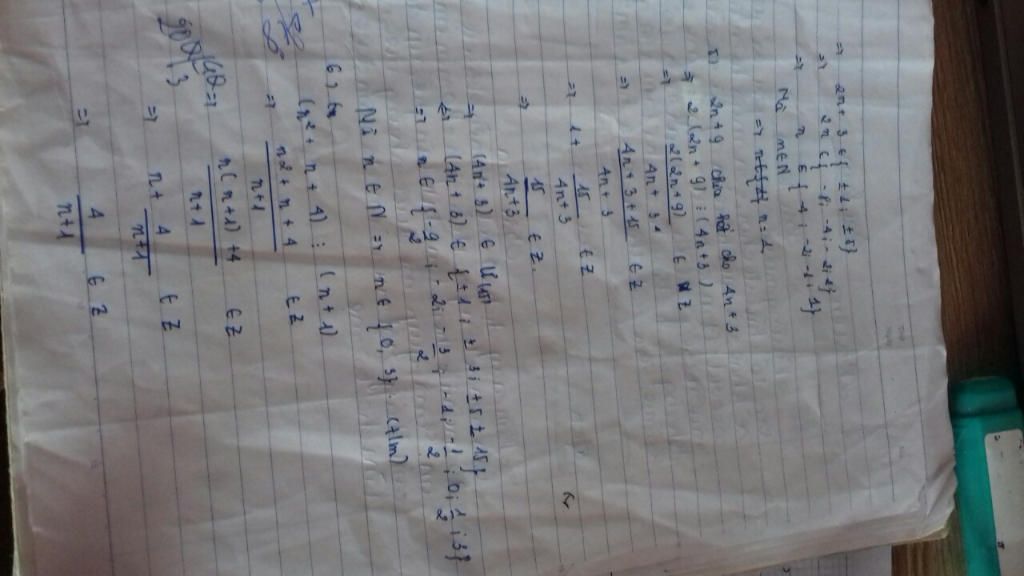 => 2n + 3 ∈ { ±1 ; ±5 }
=> 2n ∈ { -8 ; -4 ; -2 ; 2 }
=> n ∈ { -4 ; -2 ; -1 ; 1 }
Mà n ∈ N
=> n = 1
2n + 9 chia hết cho 4n + 3
=> 2 (2n + 9) ⋮ (4n + 3)
=> 2(2n+9) / 4n + 3 ∈ Z
=> 4n + 3 + 15 / 4n + 3 ∈ Z
=> 1 + 15 / 4n + 3 ∈ Z
=> 15 / 4n + 3 ∈ Z
=> (4n + 3) ∈ Ư(15)
<=> (4n + 3) ∈ { ±1 ; ±3 ; ±5 ± 15 }
=> n ∈ { -9/2 ; -2 ; -3/2 ; -1 ; -1/2 ; 0 ; 1/2 ; 3 }
Mà n ∈ N => n ∈ { 0 , 3 } (t/m)
6,
(n² + n + 4) ⋮ (n + 1)
=> n² + n + 4 / n + 1 ∈ Z
=> n(n + 1) + 4 / n + 1 ∈ Z
=> n + 4 / n + 1 ∈ Z
=> 4 / n + 1 ∈ Z